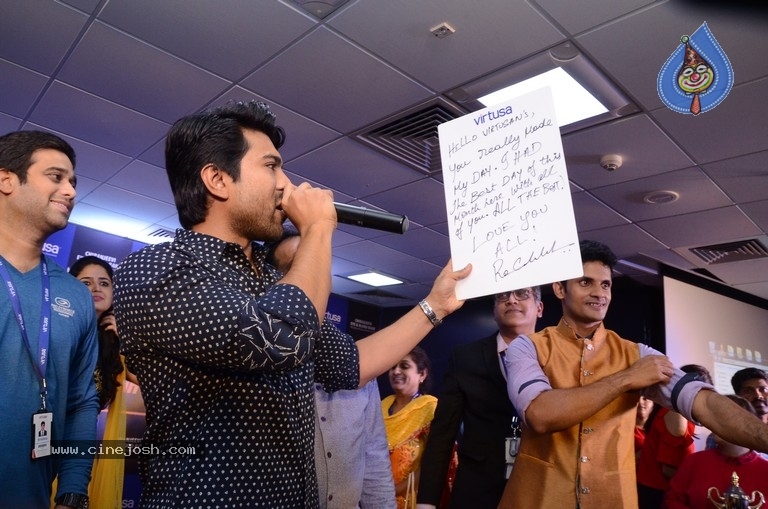 virtusa
HELLO VIRTUSAN'S,
You Really Made
My DAY. I HAD
The BEST DAY of this
Month Here with all
of you. ALL THE BEST!
LOVE YOU
ALL!
virtusa
virtusa
www.cinejosh.com